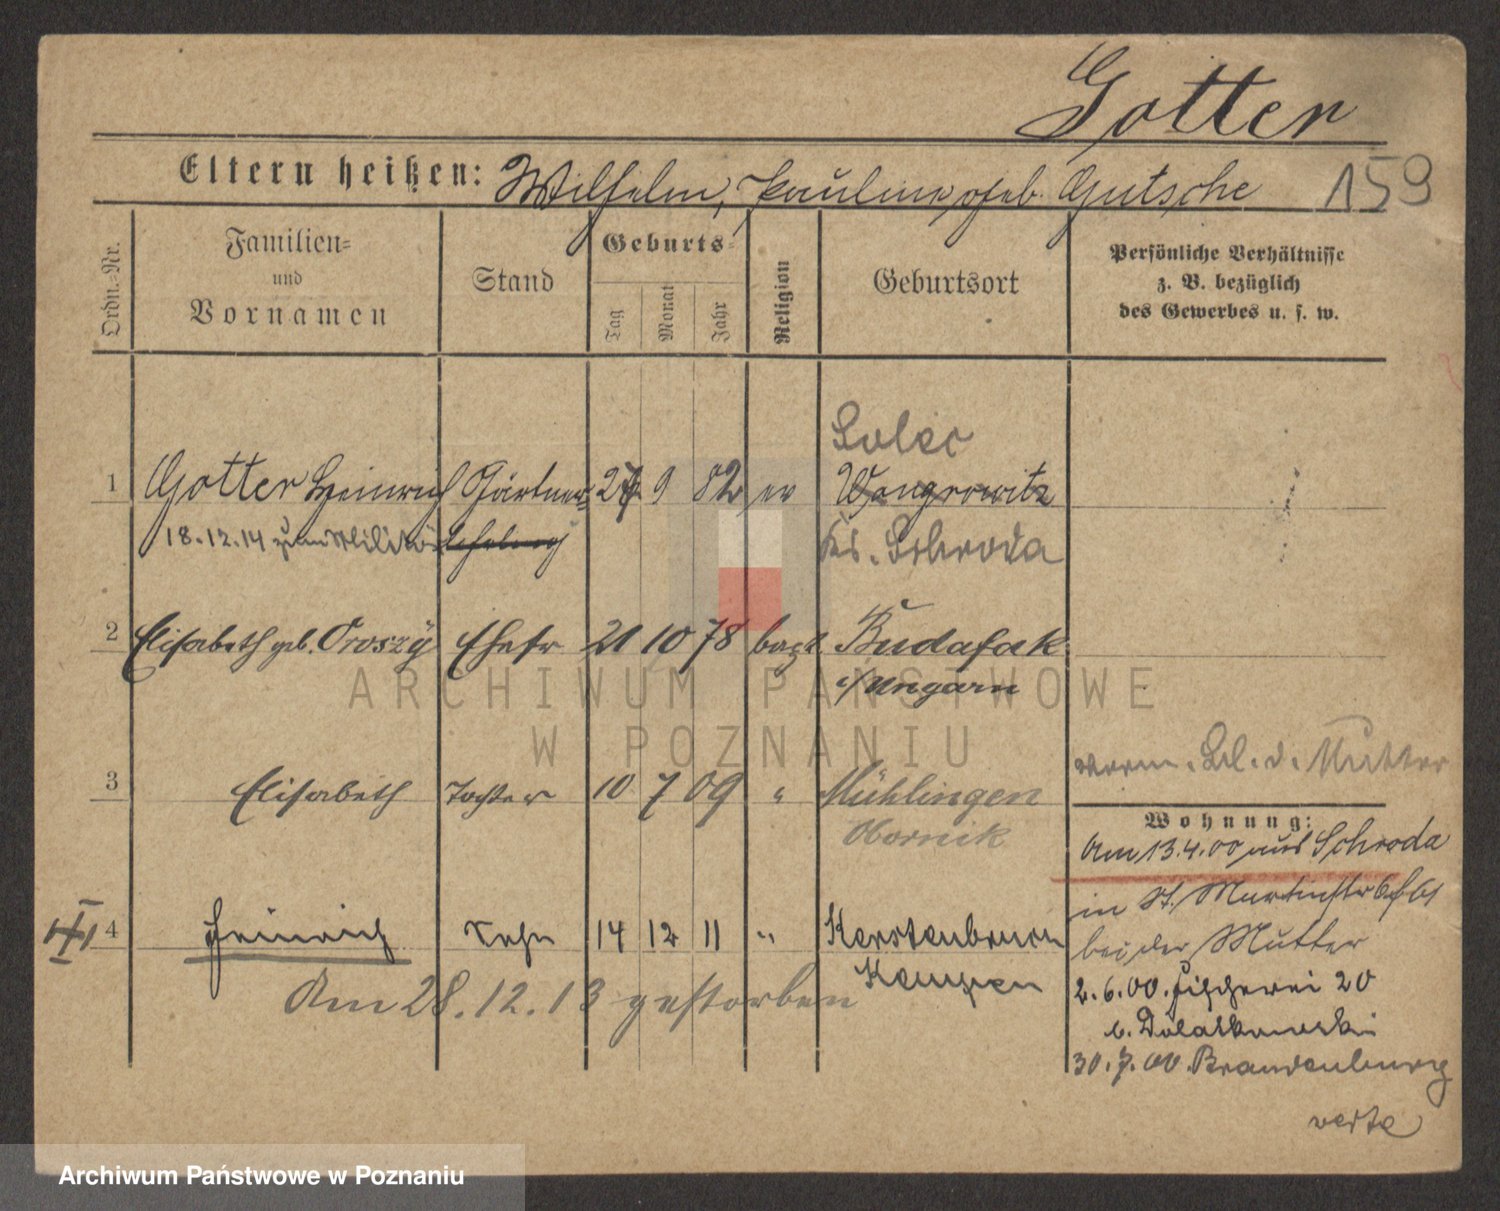 Gotter
Eltern heißen: Wilhelm, Pauline geb. Gutsche 159
Ordn.-Nr.
Familien- und Vornamen
Stand
Geburts-
Tag
Monat
Jahr
Religion
Geburtsort
Persönliche Verhältnisse
z. B. bezüglich
des Gewerbes u. s. w.
Solec
1 Gotter Heinrich Gärtner 9 82 ev Wongrowitz
18.12.14 zum Militär Lehrling Kr. Schroda
2 Elisabeth geb. Oroszy Ehefr 21 10 78 Budafok
i/Ungarn
3 Elisabeth Tochter 10 7 09 " Mühlingen
Obornik
verm. Sch. d. Mutter
Wohnung:
Am 13.4.00 aus Schroda
in St. Martinstr
bei der Mutter
2.6.00. Fischerei 20
b. Dolatkowski
30.7.00. Brandenburg
verte
4 Heinrich Sohn 14 12 11 " Kerstenbruch
Kempen
Am 28.12.13 gestorben
ARCHIWUM PAŃSTWOWE
W POZNANIU
Archiwum Państwowe w Poznaniu